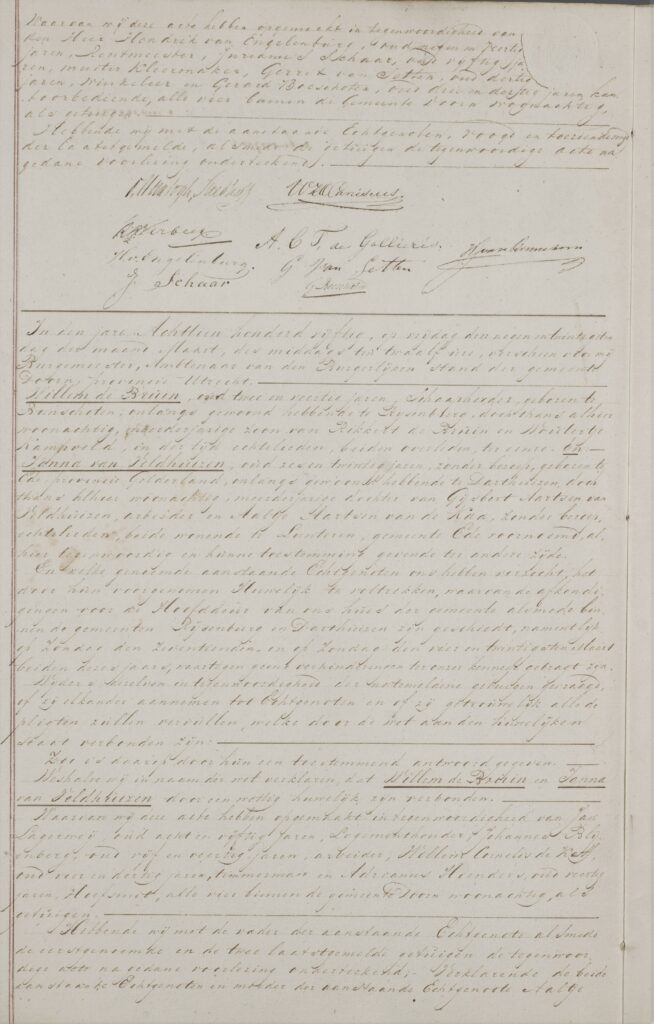 Waarvan wij deze acte hebben opgemaakt in tegenwoordigheid van
den Heer Hendrik van Engelenburg, oud
jaren, Rentmeester, Jurriamus Schaar, oud vijftig ja
ren, meester Kleermaker, Gerret van Setten, oud dertig
jaren, Winkelier en Gerard Boeschoten, oud drie en dertig jaren, kan
toorbediende, alle vier binnen de Gemeente Doorn woonachtig,
als getuigen
Hebbende wij met de aanstaande Echtgenoten, Voogd en toeziende voogd
der laatstgemelde, alsmede de getuigen de tegenwoordige acte na
gedane voorlezing onderteekend.
K. Verbeek
A. C. T. de Gallieris.
H. v. Engelenburg.
G van Setten
J Schaar
H van Bennekom
In een jare Achttien honderd vijftig, op vrijdag den negen en twintigsten
dag der maand Maart, des middags ten twaalf ure, verscheen voor mij
Burgemeester, Ambtenaar van den Burgerlijken Stand der gemeente
Doorn, provincie Utrecht.
Willem de Bruin, oud twee en veertig jaren, Schaapherder, geboren te
Renschoten, onlangs gewoond hebbende te Rysenberg, doch thans alhier
woonachtig, meerderjarige zoon van Rikkert de Bruin en Woutertje
Kampveld, in der tijd echtelieden, beiden overleden, ter eenre. En
Janna van Veldhuizen, oud zes en twintig jaren, zonder beroep, geboren te
Ede provincie Gelderland, onlangs gewoond hebbende te Darthuizen, doch
thans alhier woonachtig, meerderjarige dochter van Gijsbert Aartsen van
Veldhuizen, arbeider en Aaltje Aartsen van de Kaa, zonder beroep,
echtelieden, beide wonende te Lunteren, gemeente Ede voornoemd, al
hier tegenwoordig en hunne toestemming gevende ter andere zijde.
En welke genoemde aanstaande Echtgenoten ons hebben verzocht, het
door hun voorgenomen Huwelijk te voltrekken, waarvan de afkondi
gingen voor de Hoofddeur van ons huis der gemeente alsmede bin
nen de gemeenten Rysenburg en Darthuizen zijn geschied, namentlijk
op Zondag den zeventienden en op Zondag den vier en twintigsten Maart
beiden dezes jaars, waartegen geene verhinderingen ter onzer kennis gebragt zijn.
Nadat dezelven in tegenwoordigheid der natemeldene getuigen gevraagd,
of zij elkander aannemen tot Echtgenoten en of zij getrouwelijk alle de
pligten zullen vervullen, welke door de wet aan den huwelijken
staat verbonden zijn:
Zoo is daarop door hun een toestemmend antwoord gegeven.
Weshalve wij in naam der wet verklaren, dat Willem de Bruin en Janna
van Veldhuizen door een wettig huwelijk zijn verbonden.
Waarvan wij deze acte hebben opgemaakt in tegenwoordigheid van Jan
Lagerweij, oud acht en vijftig jaren, Logementhouder, Johannes Blij
enberg, oud vijf en veertig jaren, arbeider, Willem Cornelis de Kaff,
oud vier en dertig jaren, timmerman en Adrianus Hoenders, oud veertig
jaren, Hoefsmit, alle vier binnen de gemeente Doorn woonachtig, als
getuigen.
Hebbende wij met de vader der aanstaande Echtgenote alsmede
de eerstgenoemde en de twee laatstgemelde getuigen de tegenwoor
dige acte na gedane voorlezing onderteekend, Verklarende de beide
aanstaande Echtgenoten en moeder der aanstaande Echtgenote Aaltje